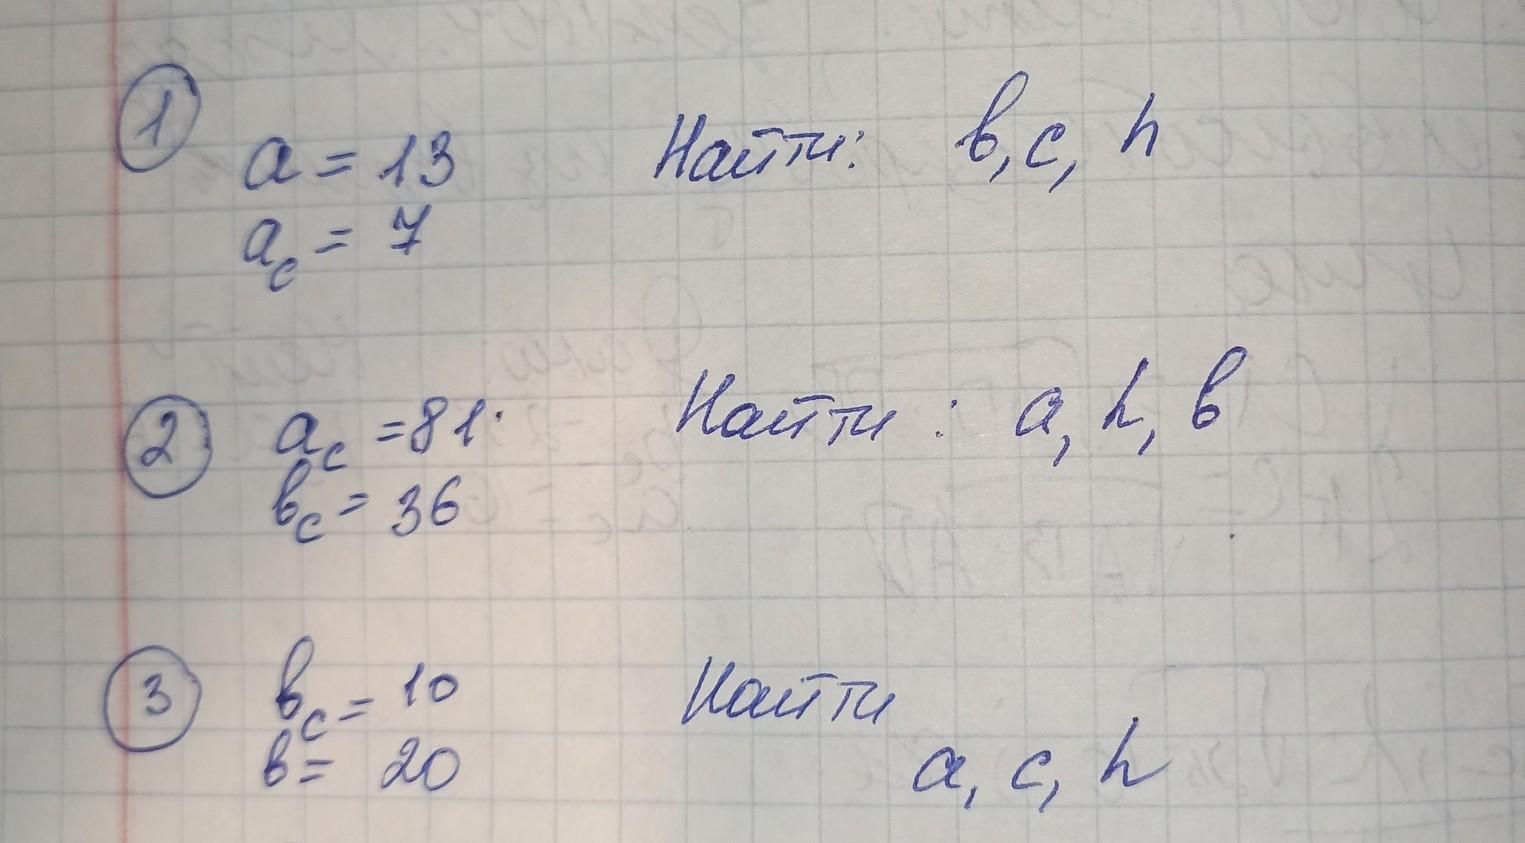 1
a = 13 Найти: в, с, h
a_c = 7
2 a_c = 81 Найти : а, h, в
в_c = 36
3 в_c = 10 Найти
в = 20 а, с, h